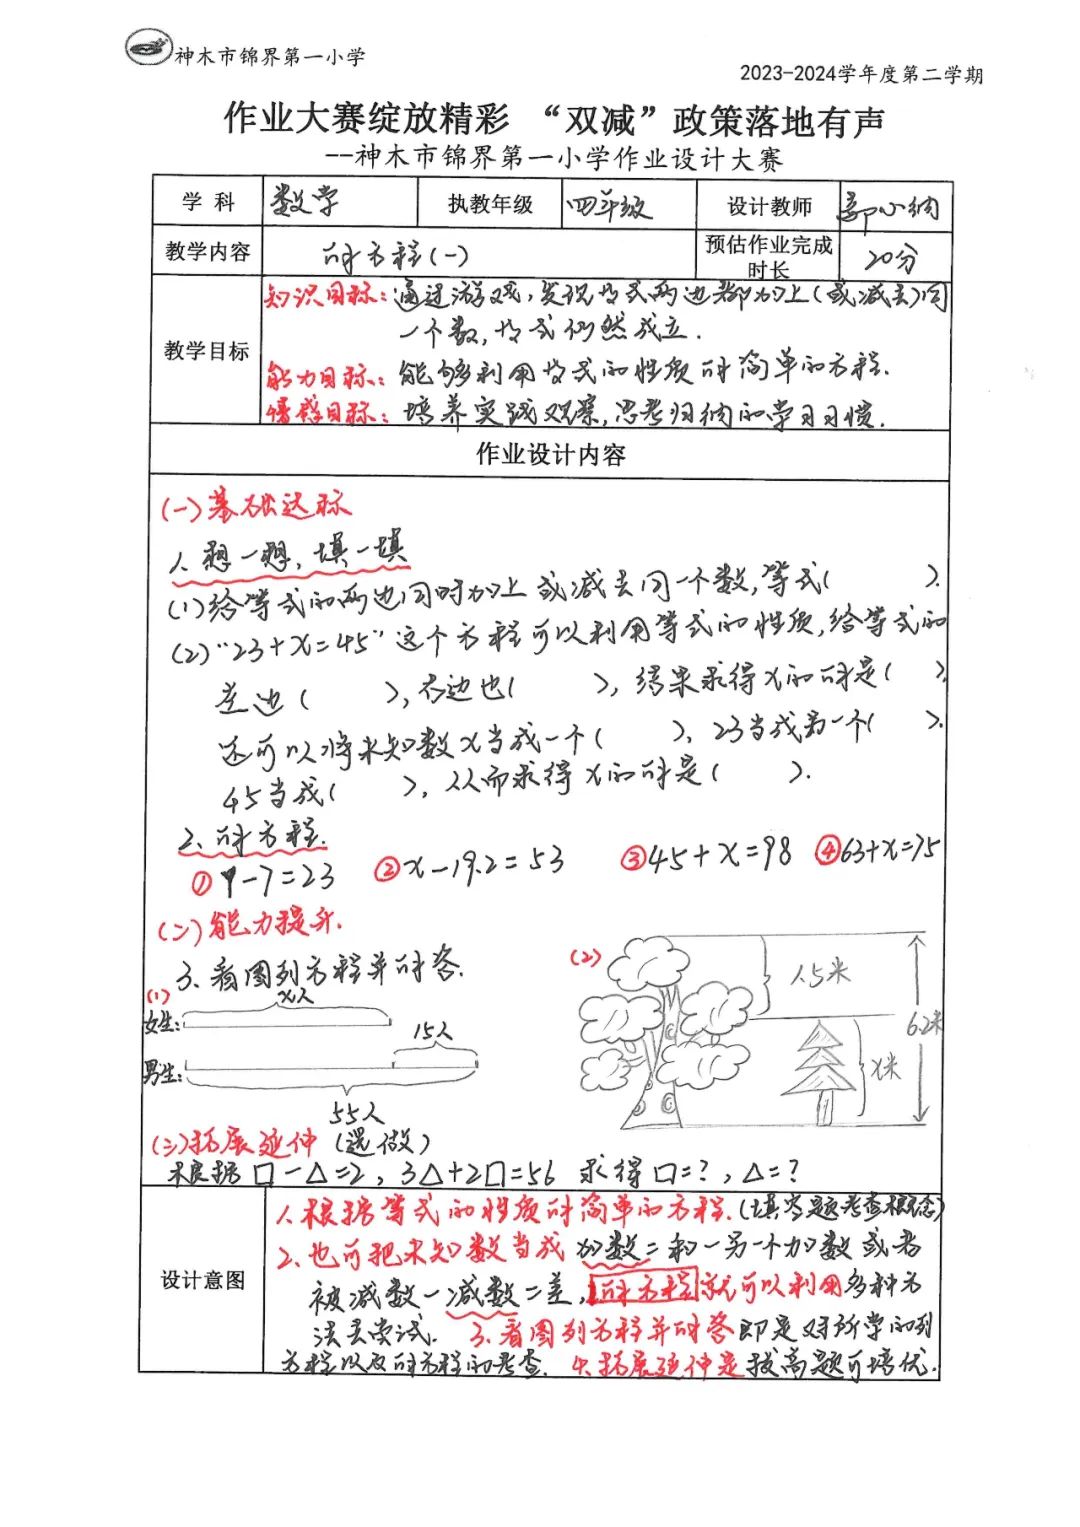 神木市锦界第一小学
2023-2024学年度第二学期
作业大赛绽放精彩 “双减”政策落地有声
--神木市锦界第一小学作业设计大赛
学 科 数学 执教年级 四年级 设计教师 郭小纳
教学内容 解方程(一) 预估作业完成时长 20分
教学目标
知识目标:通过游戏,发现等式两边都加上(或减去)同
一个数,等式仍然成立.
能力目标:能够利用等式的性质解简单的方程.
情感目标:培养实践观察,思考归纳的学习习惯.
作业设计内容
(一)基础达标
1. 想一想,填一填
(1)给等式的两边同时加上或减去同一个数,等式( ).
(2)“23+x=45”这个方程可以利用等式的性质,给等式的
左边( ),右边也( ),结果求得x的解是( ),
还可以将未知数x当成一个( ),23当成另一个( ).
45当成( ),从而求得x的解是( ).
2、解方程.
① y-7=23 ②x-19.2=53 ③45+x=98 ④63+x=75
(二)能力提升.
3、看图列方程并解答.
(1)
x人
女生:
15人
男生:
55人
(2)
1.5米
6.2米
x米
(三)拓展延伸 (选做)
根据□-△=2, 3△+2□=56 求得□=?,△=?
设计意图
1、根据等式的性质解简单的方程.(填空题考查概念)
2、也可把未知数当成 加数=和-另一个加数或者
被减数-减数=差,解方程就可以利用多种方
法去尝试. 3、看图列方程并解答即是对所学的列
方程以及解方程的考查. 4、拓展延伸是拔高题可培优.